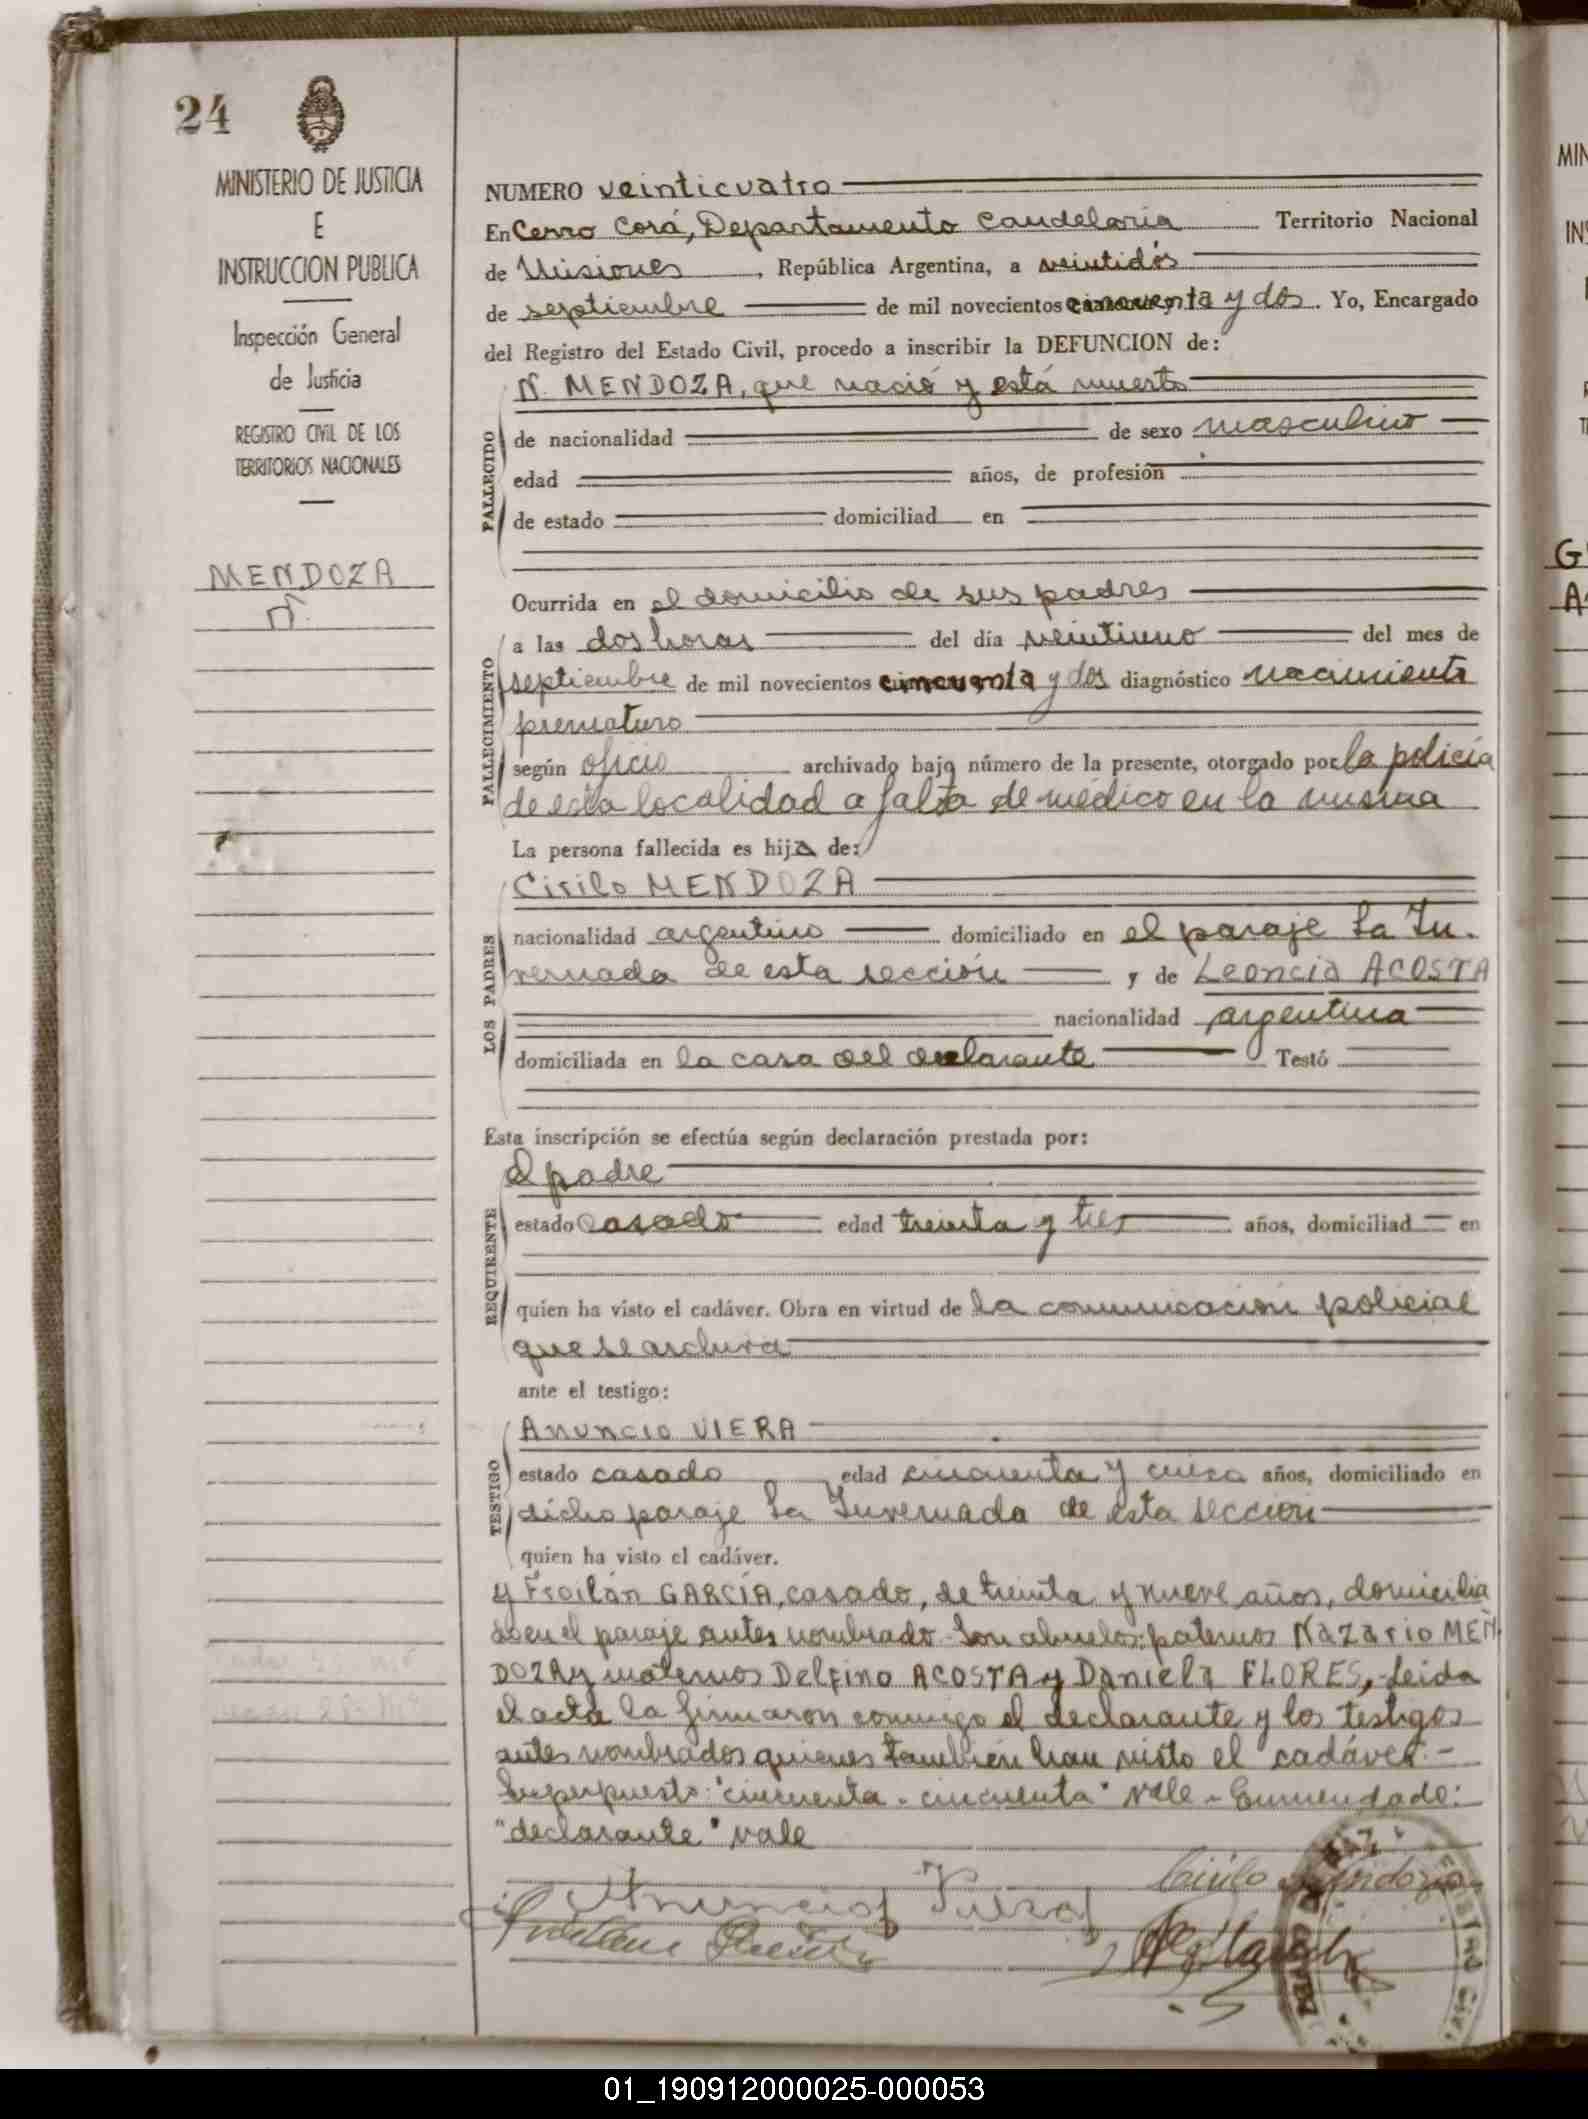 24
MINISTERIO DE JUSTICIA
E
INSTRUCCION PUBLICA
Inspección General
de Justicia
REGISTRO CIVIL DE LOS
TERRITORIOS NACIONALES
MENDOZA
Ñ.
NUMERO veinticuatro
En Cerro Corá, Departamento Candelaria Territorio Nacional
de Misiones, República Argentina, a veintidós
de septiembre de mil novecientos cincuenta y dos. Yo, Encargado
del Registro del Estado Civil, procedo a inscribir la DEFUNCION de:
FALLECIDO
Ñ. MENDOZA, que nació y está muerto
de nacionalidad de sexo masculino
edad años, de profesión
de estado domiciliad en
Ocurrida en el domicilio de sus padres
FALLECIMIENTO
a las dos horas del día veintiuno del mes de
septiembre de mil novecientos cincuenta y dos diagnóstico nacimiento
prematuro
según oficio archivado bajo número de la presente, otorgado por la policía
de esta localidad a falta de médico en la misma
La persona fallecida es hijo de:
LOS PADRES
Cirilo MENDOZA
nacionalidad argentino domiciliado en el paraje La In-
vernada de esta sección y de Leoncia ACOSTA
nacionalidad argentina
domiciliada en la casa del declarante Testó
Esta inscripción se efectúa según declaración prestada por:
REQUIRENTE
el padre
estado casado edad treinta y tres años, domiciliad en
quien ha visto el cadáver. Obra en virtud de la comunicación policial
que se archiva
ante el testigo:
TESTIGO
Anuncio VIERA
estado casado edad cincuenta y cinco años, domiciliado en
dicho paraje La Invernada de esta sección
quien ha visto el cadáver.
y Froilán GARCÍA, casado, de treinta y nueve años, domicilia
do en el paraje antes nombrado. Son abuelos: paternos Nazario MEN
DOZA y maternos Delfino ACOSTA y Daniela FLORES,- Leida
el acta la firmaron conmigo el declarante y los testigos
antes nombrados quienes también han visto el cadáver.-
Superpuesto: "cincuenta - cincuenta" vale - Enmendado:
"declarante" vale
Cirilo Mendoza
Anuncio Viera
01_190912000025-000053